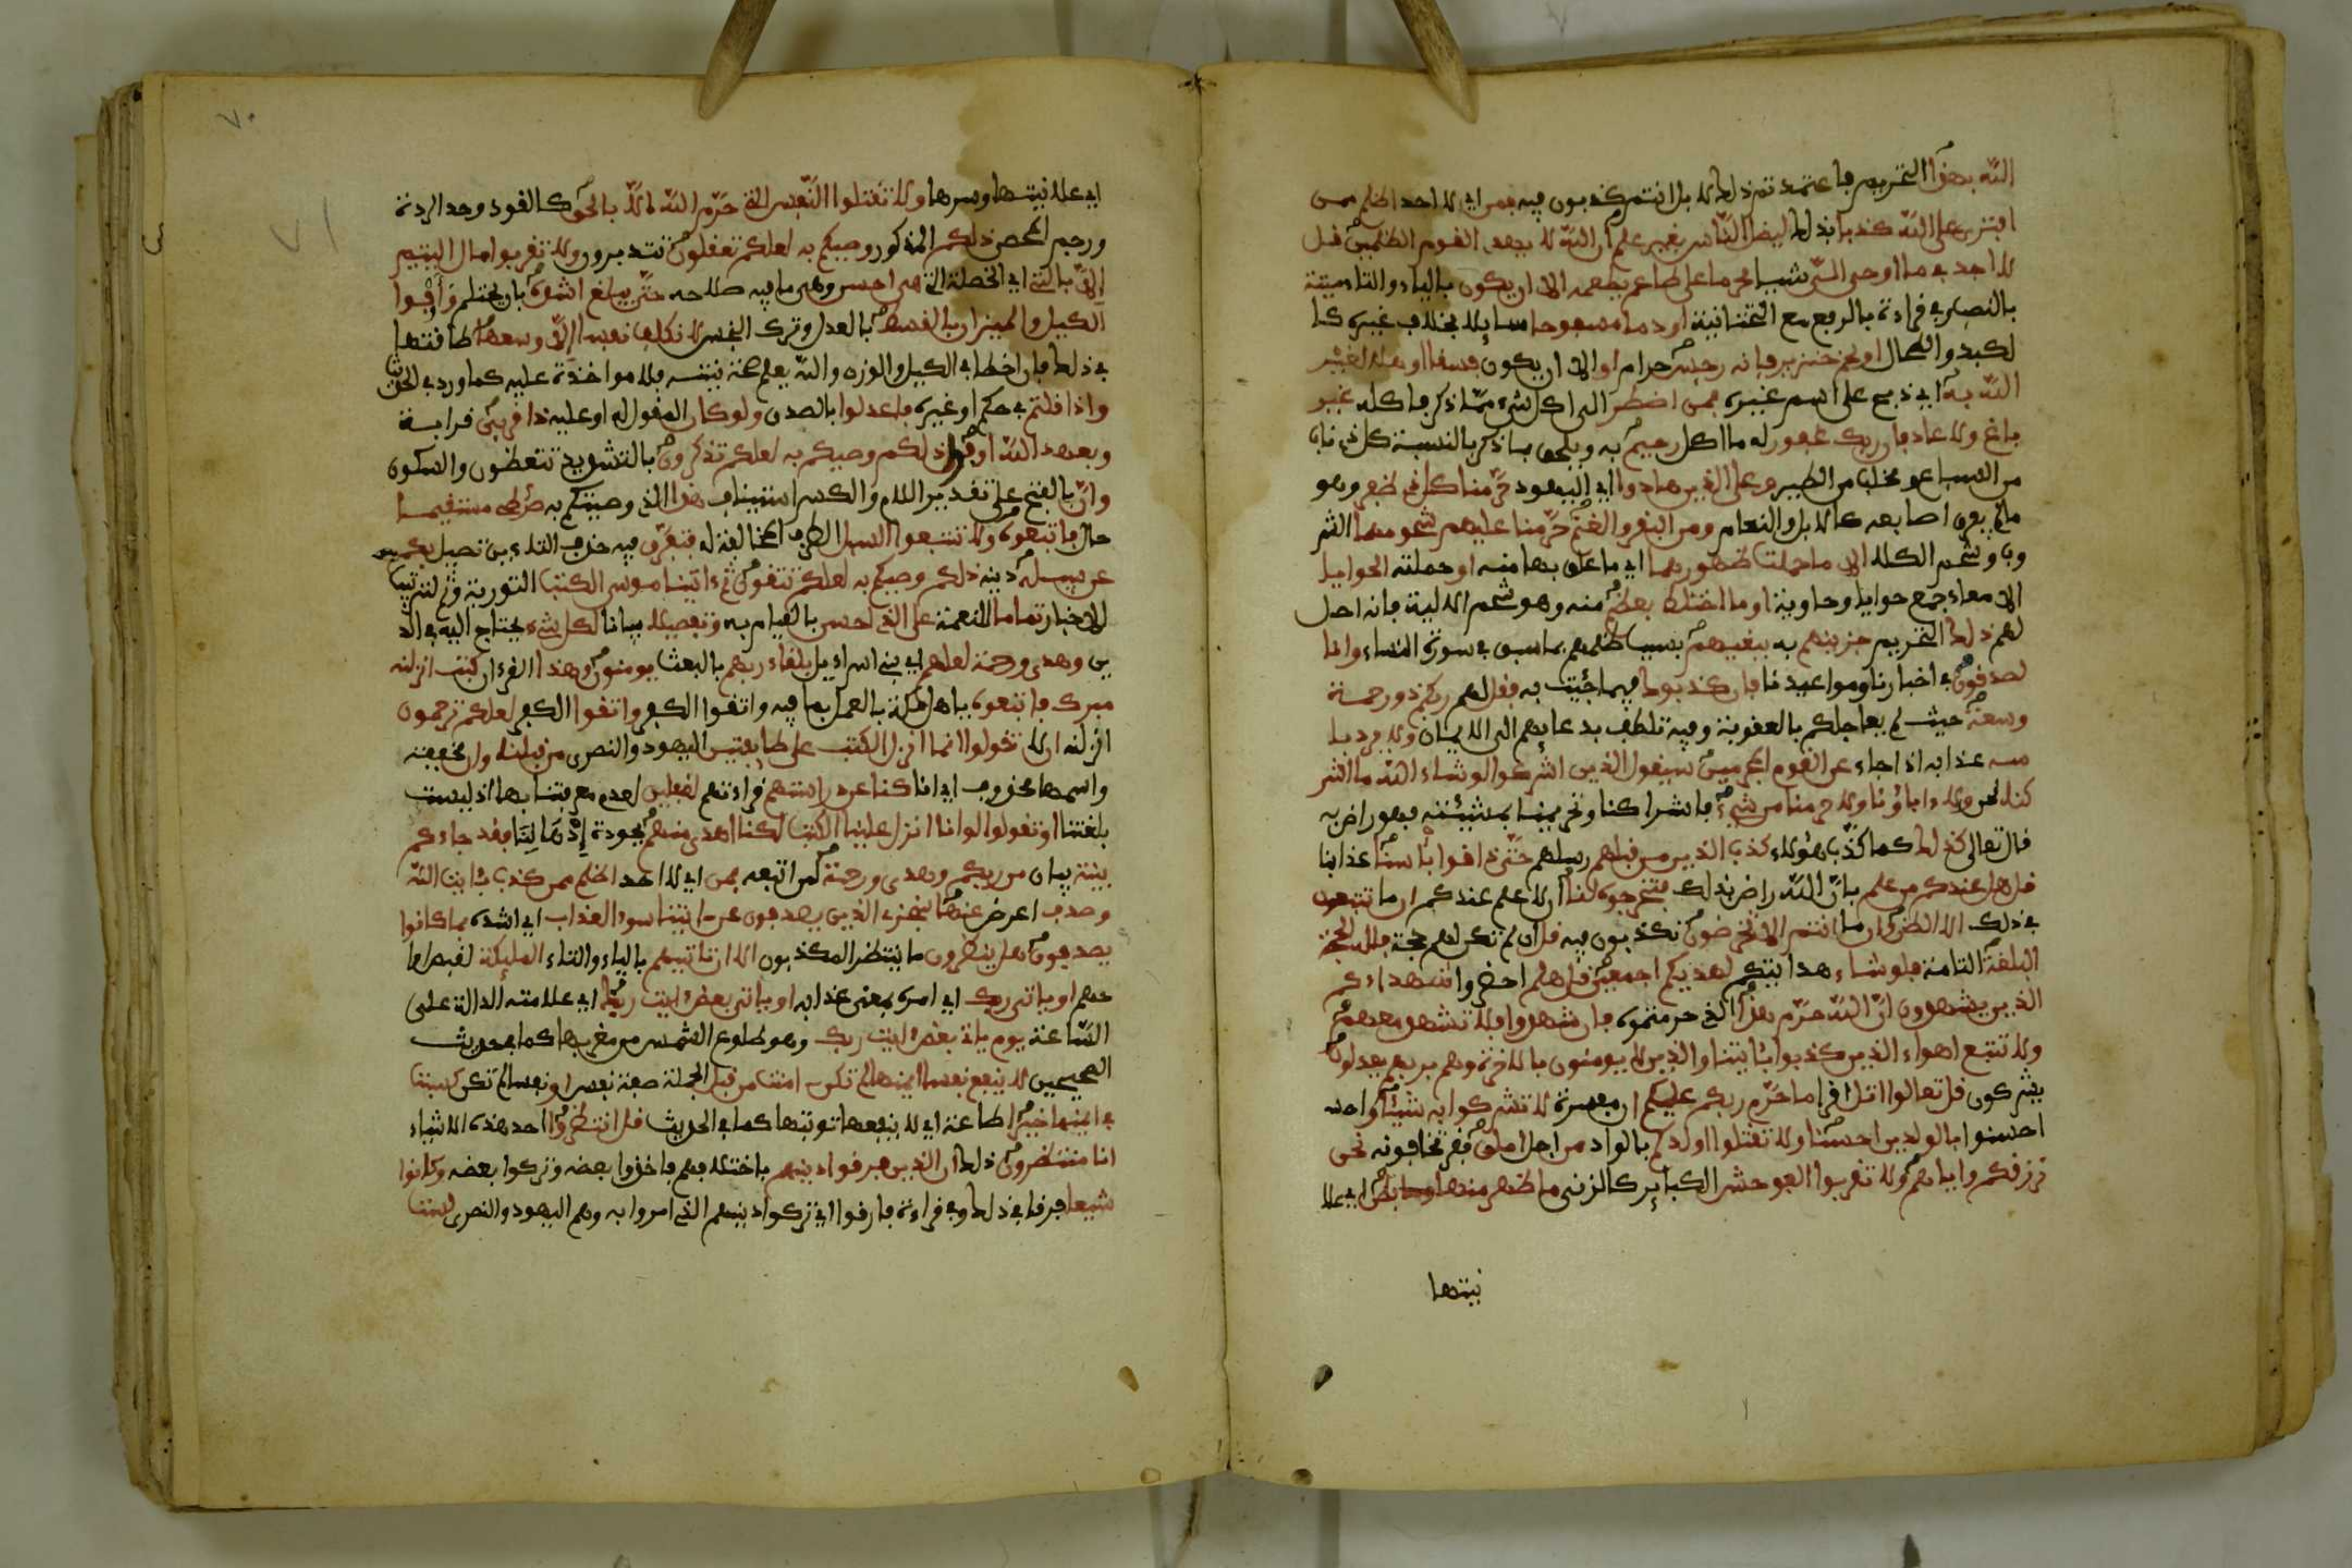 الله بهذا التحريم فاعتمدتم ذلك لا بل انتم كذبون فيه فمن اي لا احد اظلم ممن
افترى على الله كذبا بذلك ليضل الناس بغير علم ان الله لا يهدي القوم الظلمين قل
لا اجد في ما اوحي الي شيئا محرما على طاعم يطعمه الا ان يكون بالياء والتاء ميتة
بالنصب وفي قراءة بالرفع مع التحتانية او دما مسفوحا سايلا بخلاف غيره كا
لكبد والطحال او لحم خنزير فانه رجس حرام او الا ان يكون فسقا اهل لغير
الله به اي ذبح على اسم غيره فمن اضطر الى اكل شيء مما ذكر فاكله غير
باغ ولا عاد فان ربك غفور له ما اكل رحيم به ويلحق بما ذكر بالنسبة كل ذي ناب
من السباع ومخلب من الطير وعلى الذين هادوا اي اليهود حرمنا كل ذي ظفر وهو
ما لم يفرق اصابعه كالابل والنعام ومن البقر والغنم حرمنا عليهم شحومهما الثر
وب وشحم الكلا الا ما حملت ظهورهما اي ما علق بها منه او حملته الحوايا
الامعاء جمع حوايا وحاوية او ما اختلط بعظم منه وهو شحم الالية فانه احل
لهم ذلك التحريم جزينهم به ببغيهم بسبب ظلمهم بما سبق في سورة النساء وانا
لصدقون في اخبارنا ومواعيدنا فان كذبوك فيما جئت به فقل لهم ربكم ذو رحمة
وسعة حيث لم يعاجلكم بالعقوبة وفيه تلطف بدعايهم الى الايمان ولا يرد با
سه عذابه اذا جاء عن القوم المجرمين سيقول الذين اشركوا لو شاء الله ما اشر
كنا نحن ولا ءاباؤنا ولا حرمنا من شيء فاشراكنا وتحريمنا بمشيئته فهو راض به
قال تعالى كذلك كما كذب هؤلاء كذب الذين من قبلهم رسلهم حتى ذاقوا بأسنا عذابنا
قل هل عندكم من علم بان الله راض بذلك فتخرجوه لنا اي لا علم عندكم ان ما تتبعون
في ذلك الا الظن وان ما انتم الا تخرصون تكذبون فيه قل ان لم تكن لهم حجة فلله الحجة
البلغة التامة فلو شاء هدايتكم لهديكم اجمعين قل هلم احضروا شهداءكم
الذين يشهدون ان الله حرم هذا الذي حرمتموه فان شهدوا فلا تشهد معهم
ولا تتبع اهواء الذين كذبوا بئايتنا والذين لا يومنون بالاخرة وهم بربهم يعدلون
يشركون قل تعالوا اتل اقرا ما حرم ربكم عليكم ان مفسرة لا تشركوا به شيئا واحد
احسنوا بالولدين احسنا ولا تقتلوا اولدكم بالواد من اجل املق فقر تخافونه نحن
نرزقكم واياهم ولا تقربوا الفوحش الكباير كالزنى ما ظهر منها وما بطن اي علا
نيتها
٧٠
٧١
اي علانيتها وسرها ولا تقتلوا النفس التي حرم الله الا بالحق كالقود وحد الردة
ورجم المحصن ذلكم المذكور وصيكم به لعلكم تعقلون تتدبرون ولا تقربوا مال اليتيم
الا بالتي اي الخصلة التي هي احسن وهي ما فيه صلاحه حتى يبلغ اشده بان يحتلم وأوفوا
الكيل والميزان بالقسط بالعدل وترك البخس لا نكلف نفسا الا وسعها طاقتها
في ذلك فان اخطا في الكيل والوزن والله يعلم صحة نيته فلا مواخذة عليه كما ورد في الحديث
واذا قلتم في حكم او غيره فاعدلوا بالصدق ولو كان المقول له او عليه ذا قربى قرابة
وبعهد الله اوفوا ذلكم وصيكم به لعلكم تذكرون بالتشديد تتعظون والسكون
وان بالفتح على تقدير اللام والكسر استيناف هذا الذي وصيتكم به صرطي مستقيما
حال فاتبعوه ولا تتبعوا السبل الطرق المخالفة له فتفرق فيه حذف التاءين تميل بكم
عن سبيله دينه ذلكم وصيكم به لعلكم تتقون ثم ءاتينا موسى الكتب التورية وثم لترتيب
الاخبار تماما للنعمة على الذي احسن بالقيام به وتفصيلا بيانا لكل شيء يحتاج اليه في الد
ين وهدى ورحمة لعلهم اي بني اسراءيل بلقاء ربهم بالبعث يومنون وهذا القرءان كتب انزلنه
مبرك فاتبعوه يا اهل مكة بالعمل بما فيه واتقوا الكفر واتقوا الكفر لعلكم ترحمون
انزلنه ان لا تقولوا انما انزل الكتب على طايفتين اليهود والنصرى من قبلنا وان مخففة
واسمها محذوف اي انا كنا عن دراستهم قراءتهم لغفلين لعدم معرفتنا بها اذ ليست
بلغتنا او تقولوا لو انا انزل علينا الكتب لكنا اهدى منهم لجودة اذهاننا فقد جاءكم
بينة بيان من ربكم وهدى ورحمة لمن اتبعه فمن اي لا احد اظلم ممن كذب بئايت الله
وصدف اعرض عنها سنجزي الذين يصدفون عن ءايتنا سوء العذاب اي اشده بما كانوا
يصدفون هل ينظرون ما ينتظر المكذبون الا ان تاتيهم بالياء والتاء المليكة لقبض ارو
حهم او ياتي ربك اي امره بمعنى عذابه او ياتي بعض ءايت ربك اي علامته الدالة على
الساعة يوم ياتي بعض ءايت ربك وهو طلوع الشمس من مغربها كما في حديث
الصحيحين لا ينفع نفسا ايمنها لم تكن ءامنت من قبل الجملة صفة نفس او نفسا لم تكن كسبت
في ايمنها خيرا طاعة اي لا ينفعها توبتها كما في الحديث قل انتظروا احد هذه الاشياء
انا منتظرون ذلك ان الذين فرقوا دينهم باختلافهم فاخذوا بعضه وتركوا بعضه وكانوا
شيعا فرقا في ذلك وفي قراءة فارقوا اي تركوا دينهم الذي امروا به وهم اليهود والنصرى لست